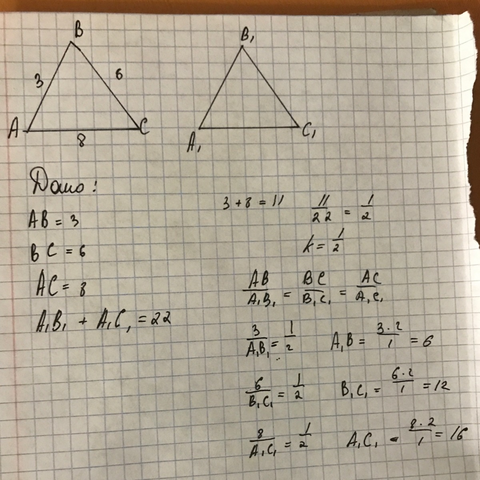 B
3
6
A
8
C
B₁
A₁
C₁
Дано:
AB = 3
BC = 6
AC = 8
A₁B₁ + A₁C₁ = 22
3 + 8 = 11
11/22 = 1/2
k = 1/2
AB/A₁B₁ = BC/B₁C₁ = AC/A₁C₁
3/A₁B₁ = 1/2 A₁B = 3·2/1 = 6
6/B₁C₁ = 1/2 B₁C₁ = 6·2/1 = 12
8/A₁C₁ = 1/2 A₁C₁ = 8·2/1 = 16